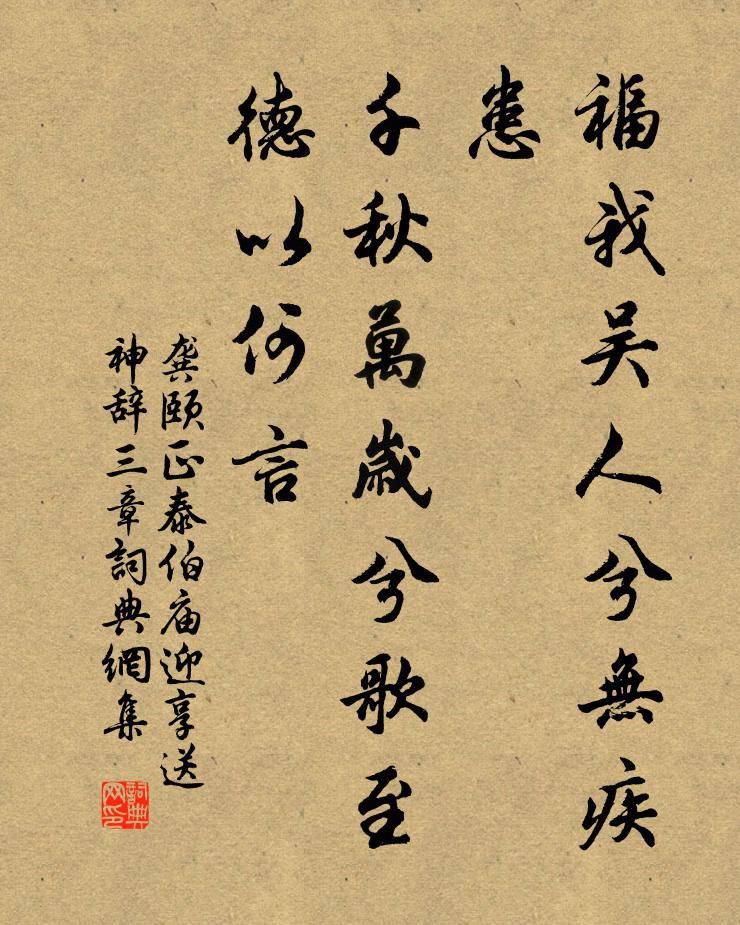 福我吴人兮無疾
患
千秋萬歲兮歌至
德以何言
龚颐正泰伯庙迎享送
神辞三章詞典網集
詞典
网印